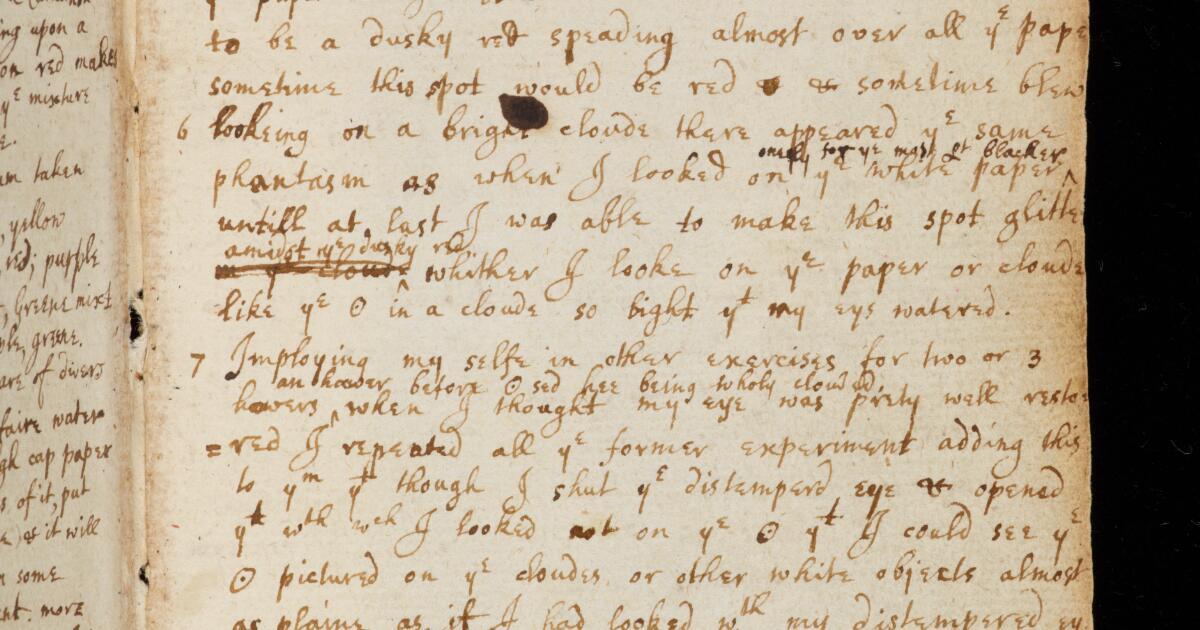 ing upon a
on red makes
yᵉ mixture
taken
yellow
red; purple
Greene mixt
ple, greene.
are of divers
faire water
gh cap paper
s of it, put
as it will
some
ent. more
to be a dusky red speading almost over all yᵉ pape
sometime this spot would be red & sometime blew
6 lookeing on a bright cloude there appeared yᵉ same
onely for yᵉ most pt blacker
phantasm as when I looked on yᵉ white paper ^
untill at last I was able to make this spot glitte
amidst yᵉ dusky red
in yᵉ cloude whither I looke on yᵉ paper or cloude
like yᵉ ☉ in a cloude so bight yᵗ my eye watered.
7 Imploying my selfe in other exercises for two or 3
an hower before ☉sed hee being wholy clouded
howers ^ when I thought my eye was prety well resto
=red I repeated all yᵉ former experiment adding this
to yᵐ yᵗ though I shut yᵉ distemperd eye & opened
yᵗ wᵗʰ wᶜʰ I looked not on yᵉ ☉ yᵗ I could see yᵉ
☉ pictured on yᵉ cloudes or other white objects almost
as plaine as if I had looked wᵗʰ my distempered ey